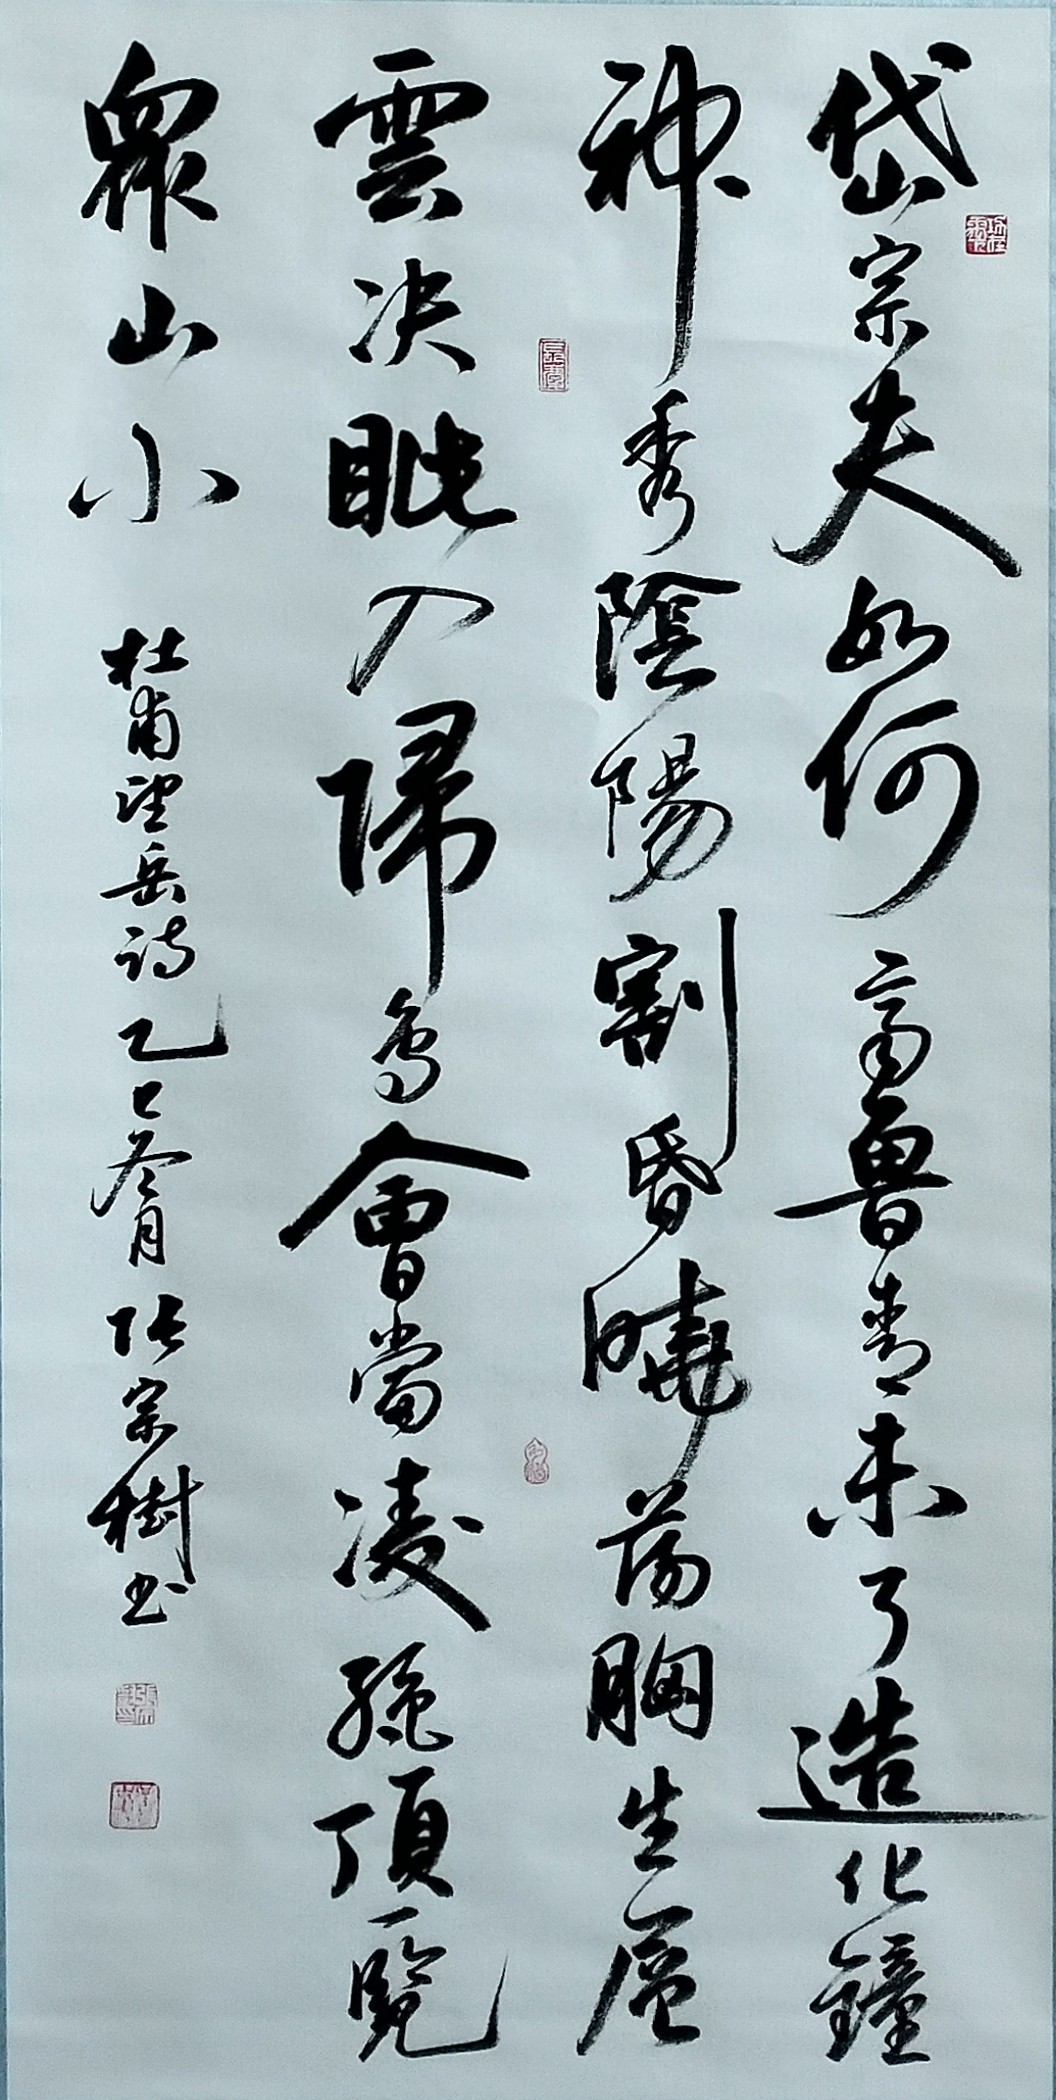 岱宗夫如何齊魯青未了造化鐘
神秀陰陽割昏曉蕩胸生層
雲決眦入歸鳥會當凌絕頂一覽
眾山小
杜甫望岳詩乙巳冬月張宗樹书